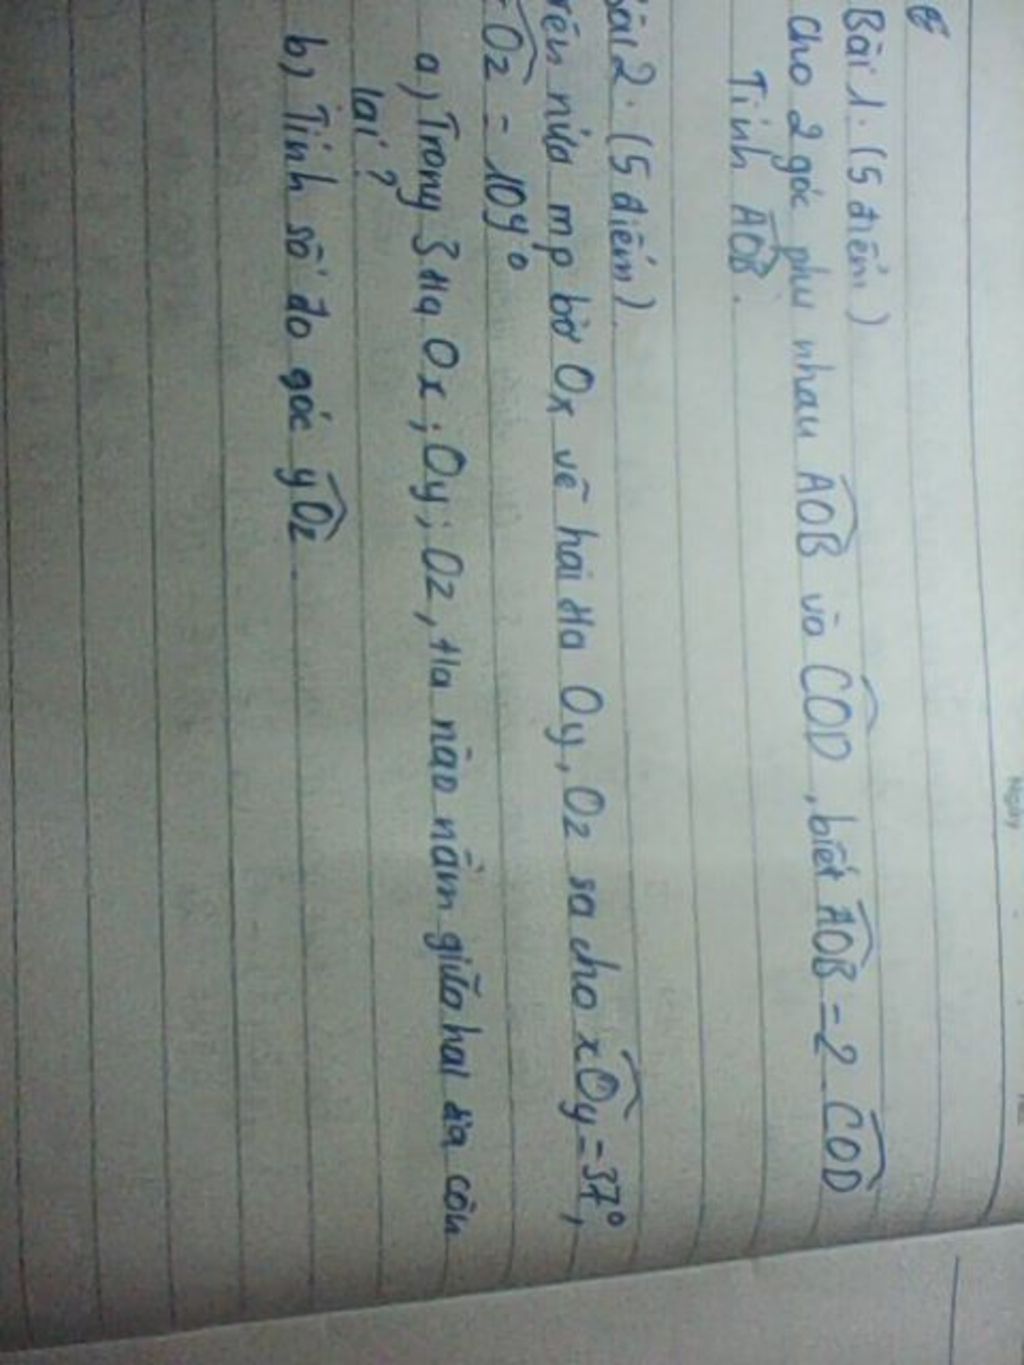 Đề
Bài 1. (5 điểm)
Cho 2 góc phụ nhau AOB và COD, biết AOB = 2 COD
Tính AOB.
Bài 2. (5 điểm).
rên nửa mp bờ Ox vẽ hai tia Oy, Oz sa cho xOy = 37°,
Oz = 109°
a) Trong 3 tia Ox; Oy; Oz, tia nào nằm giữa hai tia còn
lại?
b) Tính số đo góc yOz.
Ngày